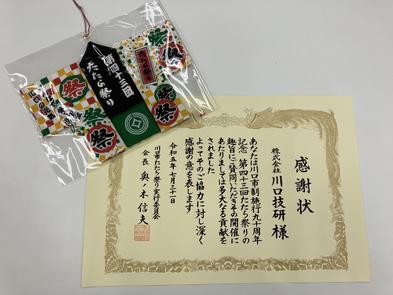 第四十三回
たたら祭り
祭
祭
祭
祭
感謝状
株式会社 川口技研 様
あなたは川口市制施行九十周年
記念 第四十三回たたら祭りの
趣旨にご賛同いただきその開催に
あたりましては多大なる貢献を
されました
よってそのご協力に対し深く
感謝の意を表します
令和五年七月三十一日
川口市たたら祭り実行委員会
会長 奥ノ木 信夫